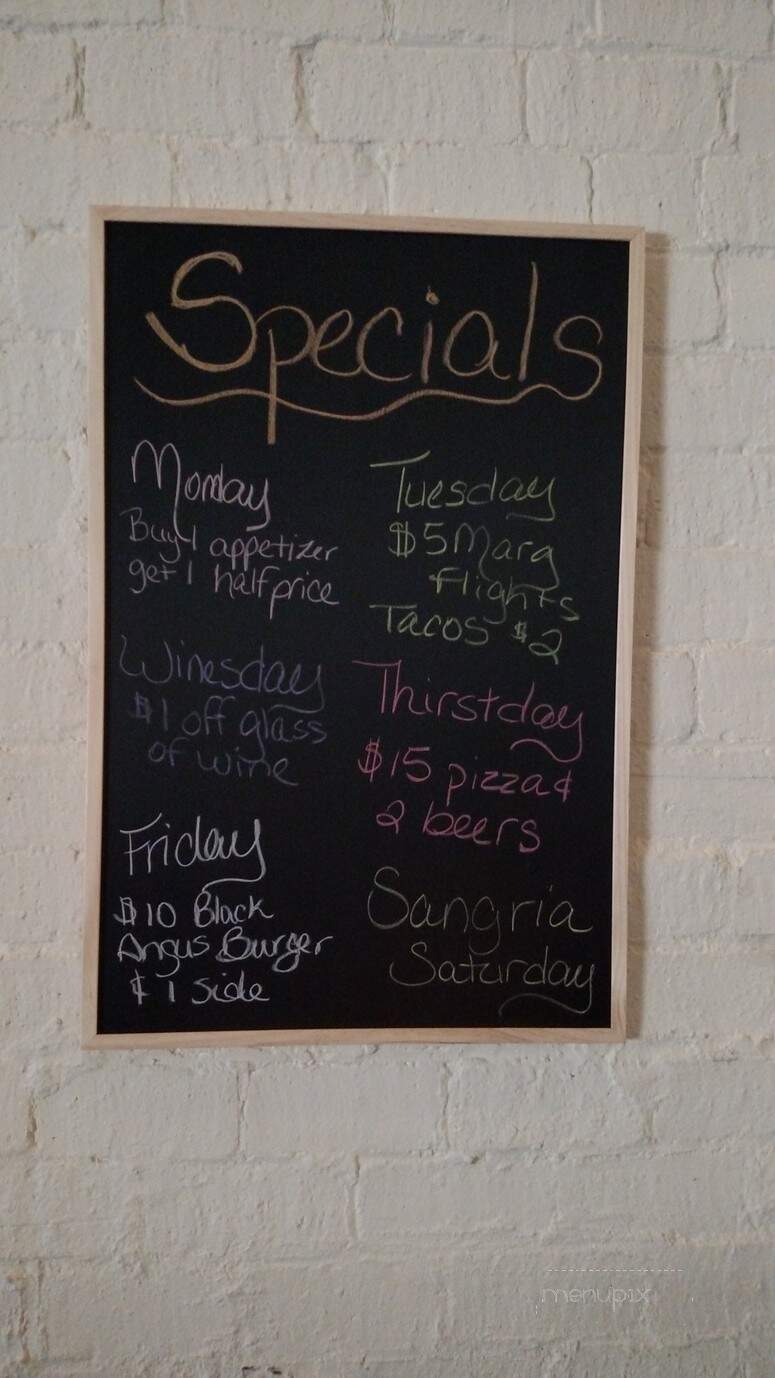 Specials
Monday
Buy 1 appetizer
get 1 half price
Tuesday
$5 Marg
flights
Tacos $2
Winesday
$1 off glass
of wine
Thirstday
$15 pizza &
2 beers
Friday
$10 Black
Angus Burger
& 1 side
Sangria
Saturday
menupix